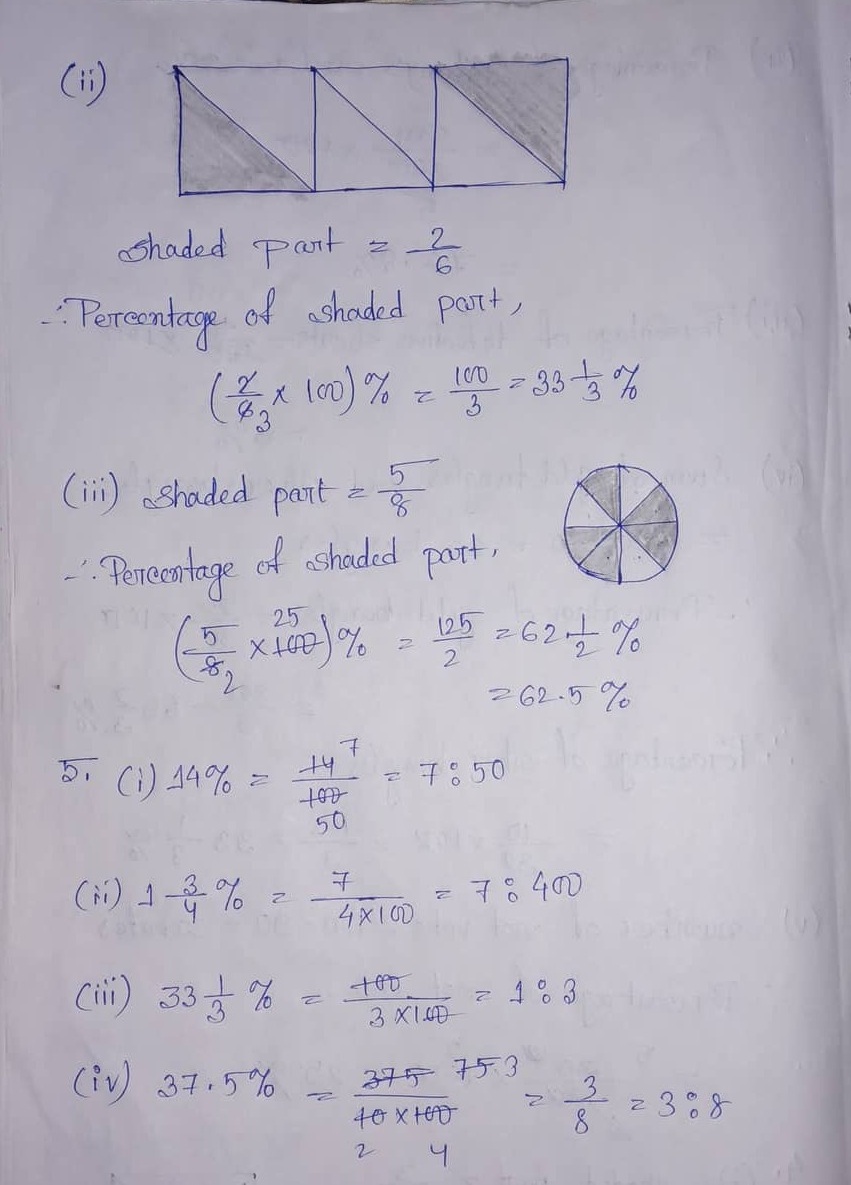 (ii)
Shaded part = 2/6
∴ Percentage of shaded part,
(2/6 3 × 100) % = 100/3 = 33 1/3 %
(iii) Shaded part = 5/8
∴ Percentage of shaded part,
(5/8 2 × 100 25) % = 125/2 = 62 1/2 %
= 62.5 %
5. (i) 14% = 14 7/100 50 = 7 : 50
(ii) 1 3/4 % = 7/4×100 = 7 : 400
(iii) 33 1/3 % = 100/3×100 = 1 : 3
(iv) 37.5% = 375 75 3/10×100 2 4 = 3/8 = 3 : 8